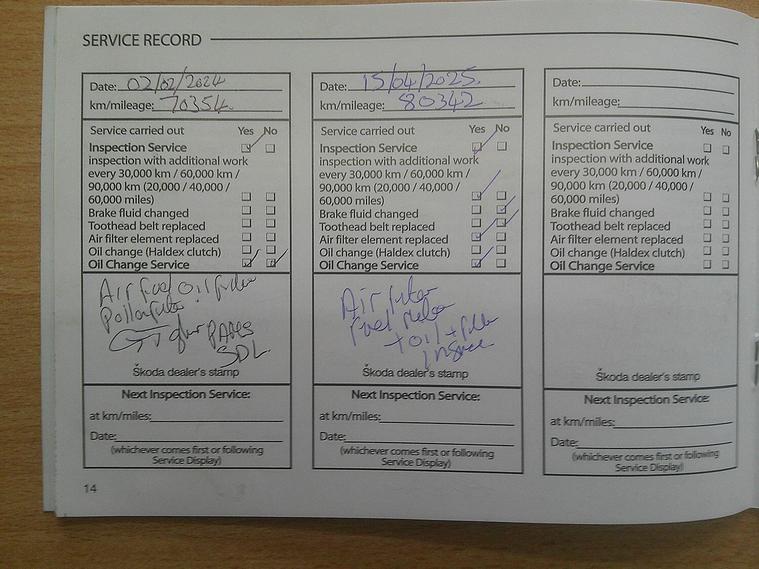 SERVICE RECORD
Date: 02/02/2024
km/mileage: 70354
Service carried out Yes No
Inspection Service
inspection with additional work
every 30,000 km / 60,000 km /
90,000 km (20,000 / 40,000 /
60,000 miles)
Brake fluid changed
Toothead belt replaced
Air filter element replaced
Oil change (Haldex clutch)
Oil Change Service
Air fuel oil filter
Pollen filter
PADS
SDL
Škoda dealer's stamp
Next Inspection Service:
at km/miles:
Date:
(whichever comes first or following
Service Display)
14
Date: 15/04/2025
km/mileage: 80342
Service carried out Yes No
Inspection Service
inspection with additional work
every 30,000 km / 60,000 km /
90,000 km (20,000 / 40,000 /
60,000 miles)
Brake fluid changed
Toothead belt replaced
Air filter element replaced
Oil change (Haldex clutch)
Oil Change Service
Air filter
Fuel filter
+ oil + filter
Škoda dealer's stamp
Next Inspection Service:
at km/miles:
Date:
(whichever comes first or following
Service Display)
Date:
km/mileage:
Service carried out Yes No
Inspection Service
inspection with additional work
every 30,000 km / 60,000 km /
90,000 km (20,000 / 40,000 /
60,000 miles)
Brake fluid changed
Toothead belt replaced
Air filter element replaced
Oil change (Haldex clutch)
Oil Change Service
Škoda dealer's stamp
Next Inspection Service:
at km/miles:
Date:
(whichever comes first or following
Service Display)